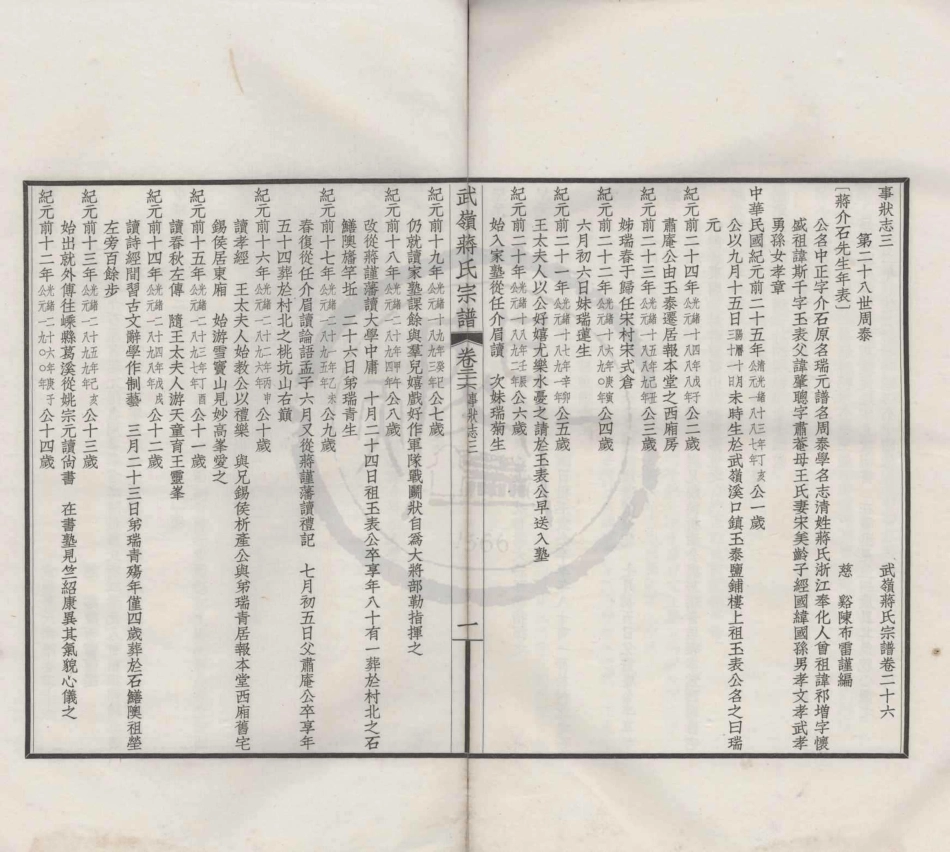 事狀志三 武嶺蔣氏宗譜卷二十六
第二十八世周泰
〔蔣介石先生年表〕 慈谿陳布雷謹編
公名中正字介石原名瑞元譜名周泰學名志清姓蔣氏浙江奉化人曾祖諱祁增字懷
盛祖諱斯千字玉表父諱肇聰字肅菴母王氏妻宋美齡子經國緯國孫男孝文孝武孝
勇孫女孝章
中華民國紀元前二十五年清光緒十三年丁亥公元一八八七年公一歲
公以九月十五日陽曆十月三十一日未時生於武嶺溪口鎮玉泰鹽鋪樓上祖玉表公名之曰瑞
元
紀元前二十四年光緒十四年戊子公元一八八八年公二歲
肅庵公由玉泰遷居報本堂之西廂房
紀元前二十三年光緒十五年己丑公元一八八九年公三歲
姊瑞春于歸任宋村宋式倉
紀元前二十二年光緒十六年庚寅公元一八九〇年公四歲
六月初六日妹瑞蓮生
紀元前二十一年光緒十七年辛卯公元一八九一年公五歲
王太夫人以公好嬉尤樂水憂之請於玉表公早送入塾
紀元前二十年光緒十八年壬辰公元一八九二年公六歲
始入家塾從任介眉讀 次妹瑞菊生
武嶺蔣氏宗譜 卷二十六 事狀志三 一
紀元前十九年光緒十九年癸巳公元一八九三年公七歲
仍就讀家塾課餘與羣兒嬉戲好作軍隊戰鬭狀自爲大將部勒指揮之
紀元前十八年光緒二十年甲午公元一八九四年公八歲
改從蔣謹藩讀大學中庸 十月二十四日祖玉表公卒享年八十有一葬於村北之石
鱔隩旛竿坵 二十六日弟瑞青生
紀元前十七年光緒二十一年乙未公元一八九五年公九歲
春復從任介眉讀論語孟子六月又從蔣謹藩讀禮記 七月初五日父肅庵公卒享年
五十四葬於村北之桃坑山右巔
紀元前十六年光緒二十二年丙申公元一八九六年公十歲
讀孝經 王太夫人始敎公以禮樂 與兄錫侯析產公與弟瑞青居報本堂西廂舊宅
錫侯居東廂 始游雪竇山見妙高峯愛之
紀元前十五年光緒二十三年丁酉公元一八九七年公十一歲
讀春秋左傳 隨王太夫人游天童育王靈峯
紀元前十四年光緒二十四年戊戌公元一八九八年公十二歲
讀詩經閒習古文辭學作制藝 三月二十三日弟瑞青殤年僅四歲葬於石鱔隩祖塋
左旁百餘步
紀元前十三年光緒二十五年己亥公元一八九九年公十三歲
始出就外傅往嵊縣葛溪從姚宗元讀尙書 在書塾見竺紹康異其氣貌心儀之
紀元前十二年光緒二十六年庚子公元一九〇〇年公十四歲